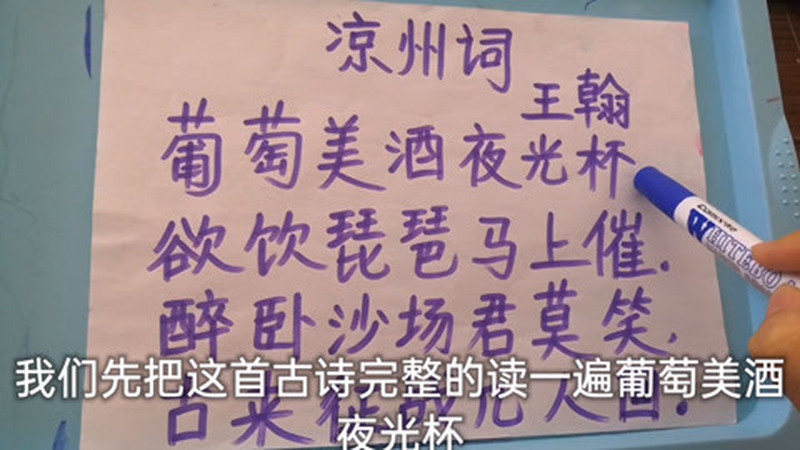 凉州词
王翰
葡萄美酒夜光杯
欲饮琵琶马上催.
醉卧沙场君莫笑.
古来征战几人回.
Comix
WHITEBO
我们先把这首古诗完整的读一遍葡萄美酒
夜光杯